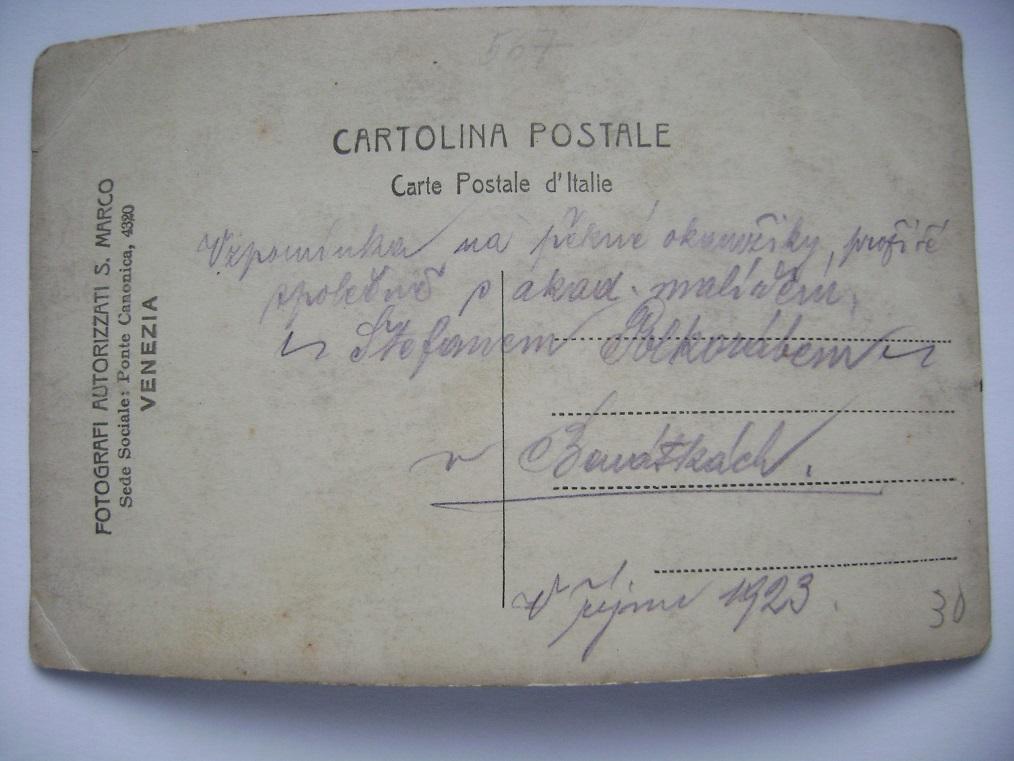 567
CARTOLINA POSTALE
Carte Postale d'Italie
FOTOGRAFI AUTORIZZATI S. MARCO
Sede Sociale: Ponte Canonica, 4320
VENEZIA
Vzpomínka na pěkné okamžiky, prožité
společně s akad. malířem,
Štefanem
v
V říjnu 1923.
30